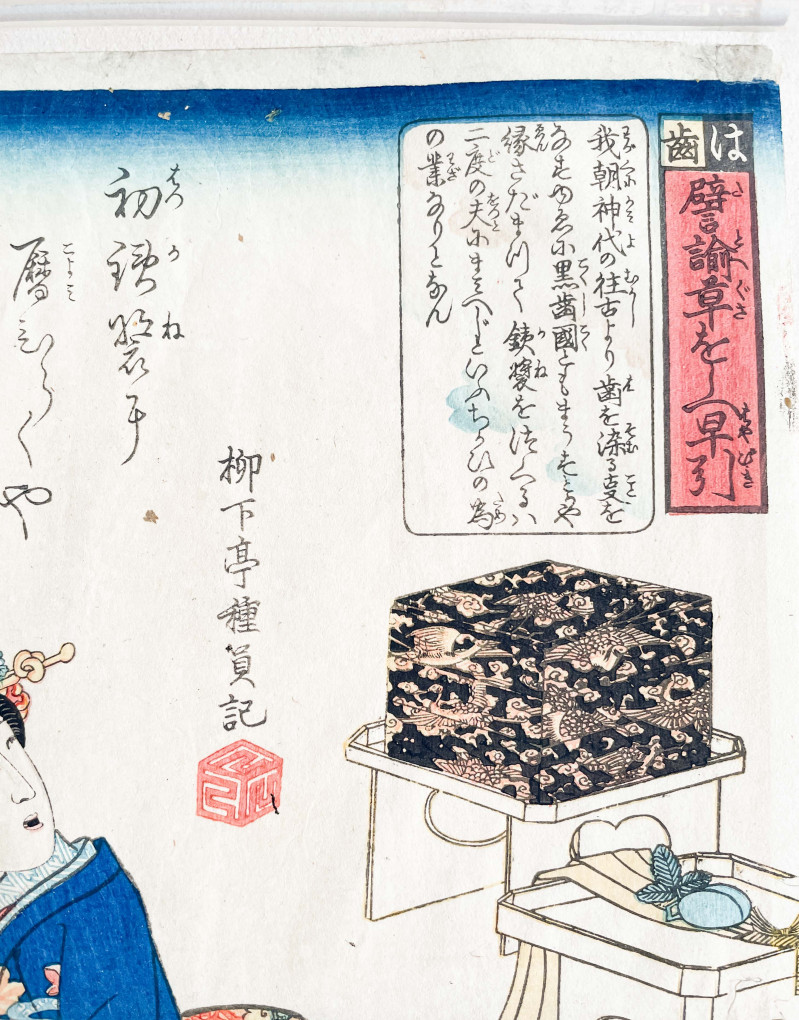 は
歯
譬諭草をしへ早引
我朝神代の往古より歯を染る事を
なすゆゑに黒歯國ともまうすとかや
縁さだまりて鉄漿をつくるハ
二度の夫にまみへじといふちかひの為
の業なりとなん
初鉄漿に
暦ひらくや
柳下亭種員記